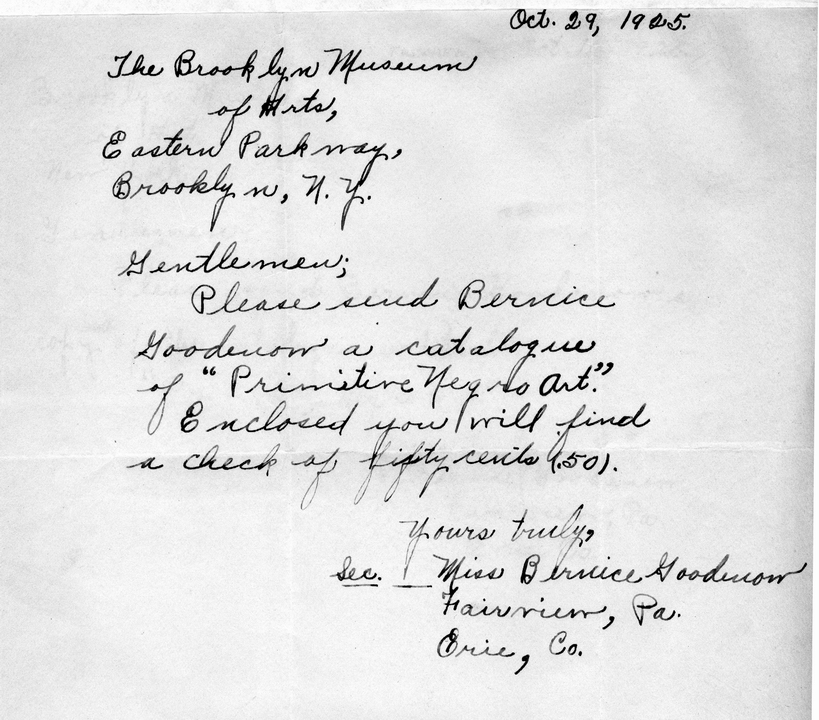 Oct. 29, 1925.
The Brooklyn Museum
of Arts,
Eastern Parkway,
Brooklyn, N. Y.
Gentlemen;
Please send Bernice
Goodenow a catalogue
of "Primitive Negro Art."
Enclosed you will find
a check of fifty cents (.50).
Yours truly,
Sec. Miss Bernice Goodenow
Fairview, Pa.
Erie, Co.